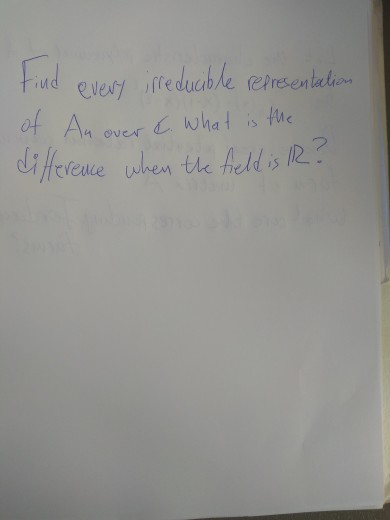 Find every irreducible representation
of An over ℂ What is the
difference when the field is ℝ?